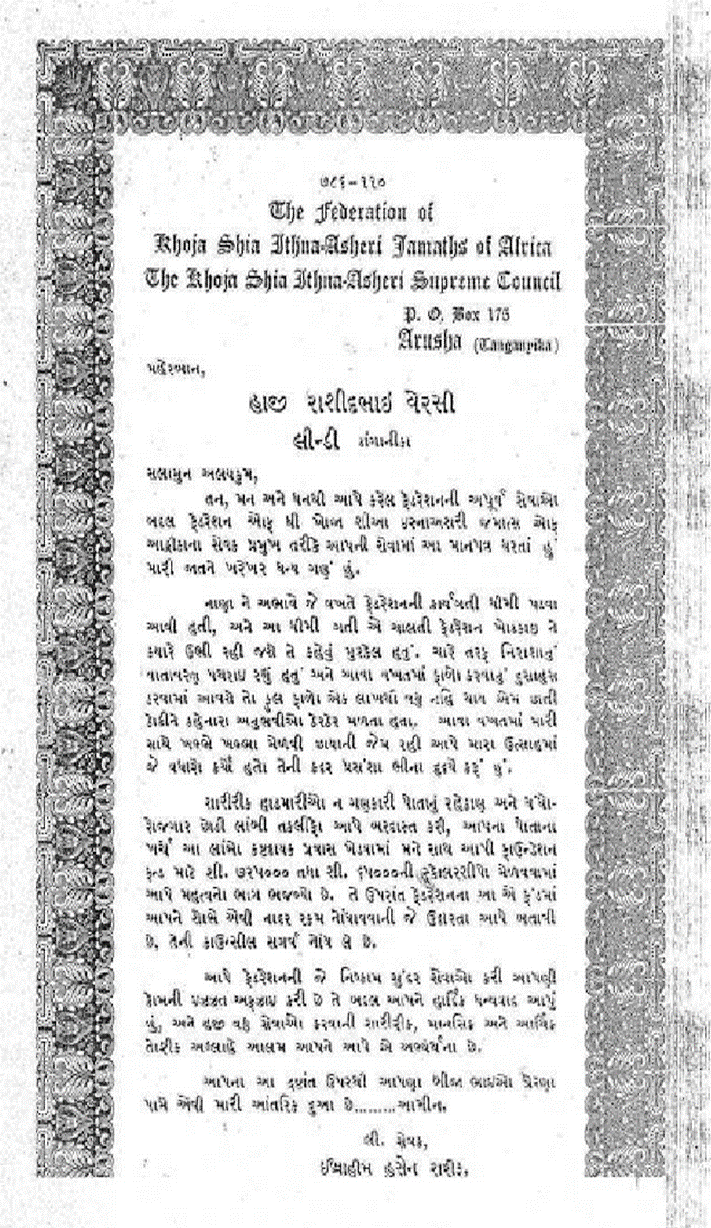 ૭૮૬-૧૧૦
The Federation of
Khoja Shia Ithna-Asheri Jamaths of Africa
The Khoja Shia Ithna-Asheri Supreme Council
P. O. Box 175
Arusha (Tanganyika)
મહેરબાન,
હાજી રાશીદભાઇ વેરસી
લીન્ડી ટાંગાનીકા
સલામુન અલયકુમ,
તન, મન અને ધનથી આપે કરેલ ફેડરેશનની અપૂર્વ સેવાઓ
બદલ ફેડરેશન ઓફ ધી ખોજા શીઆ ઇસનાઅસરી જમાત્સ ઓફ
આફ્રીકાના સેવક પ્રમુખ તરીકે આપની સેવામાં આ માનપત્ર ધરતાં હું
મારી જાતને ખરેખર ધન્ય ગણું છું.
નાણા ને અભાવે જે વખતે ફેડરેશનની કાર્યગતી ધીમી પડવા
આવી હતી, અને આ ધીમી ગતી એ ચાલતી ફેડરેશન ખોડકાઇ ને
ક્યારે ઉભી રહી જશે તે કહેવું મુશ્કેલ હતું. ચારે તરફ નિરાશાનું
વાતાવરણ પથરાઇ રહ્યું હતું અને આવા વખતમાં ફાળો કરવાનું દુસાહસ
કરવામાં આવશે તો કુલ ફાળો એક લાખથી વધુ નહિ થાય એમ છાતી
ઠોકીને કહેનારા અનુભવીઓ ઠેરઠેર મળતા હતા. આવા વખતમાં મારી
સાથે ખભ્ભે ખભ્ભા મેળવી છાયાની જેમ રહી આપે મારા ઉત્સાહમાં
જે વધારો કર્યો હતો તેની કદર પ્રસંસા ભીના હૃદયે કરૂં છું.
શારીરીક હાડમારીઓ ન ગણકારી પોતાનું રહેઠાણ અને ધંધો-
રોજગાર છોડી લાંબી તકલીફો આપે બરદાસ્ત કરી, આપના પોતાના
ખર્ચે આ લાંબો કષ્ટદાયક પ્રવાસ ખેડવામાં મને સાથ આપી ફાઉન્ડેશન
ફન્ડ માટે શી. ૭૨૫૦૦૦ તથા શી. ૬૫૦૦૦ની સ્કોલરશીપો મેળવવામાં
આપે મહત્વનો ભાગ ભજવ્યો છે. તે ઉપરાંત ફેડરેશનના આ એ ફંડમાં
આપને શોભે એવી નાદર રકમ નોંધાવવાની જે ઉદારતા આપે બતાવી
છે, તેની કાઉન્સીલ સગર્વ નોંધ લે છે.
આપે ફેડરેશનની જે નિષ્કામ સુંદર સેવાઓ કરી આપણી
કોમની ઇજ્જત અફઝાઇ કરી છે તે બદલ આપને હાર્દિક ધન્યવાદ આપું
છું, અને હજી વધુ સેવાઓ કરવાની શારીરીક, માનસિક અને આર્થિક
તોફીક અલ્લાહે આલમ આપને આપે એ અભ્યર્થના છે.
આપના આ દ્રષ્ટાંત ઉપરથી આપણા બીજા ભાઇઓ પ્રેરણા
પામે એવી મારી આંતરિક દુઆ છે.........આમીન.
લી. સેવક,
ઇબ્રાહીમ હુસેન શરીફ,